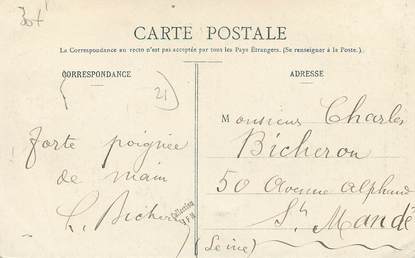 30f
CARTE POSTALE
La Correspondance au recto n'est pas acceptée par tous les Pays Étrangers. (Se renseigner à la Poste.)
CORRESPONDANCE
ADRESSE
(21)
forte poignée
de main
Collection
Monsieur Charles
Bicheron
50 Avenue Alphand
St. Mandé
(Seine)